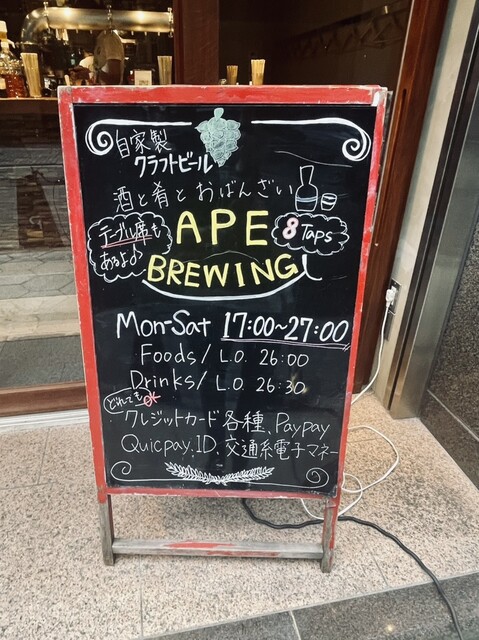 自家製
クラフトビール
酒と肴とおばんざい
テーブル席も
あるよ♪
APE
8 Taps
BREWING
Mon-Sat 17:00~27:00
Foods/ L.O. 26:00
Drinks/ L.O. 26:30
どれでもOK
クレジットカード各種, Paypay
Quicpay, ID, 交通系電子マネー